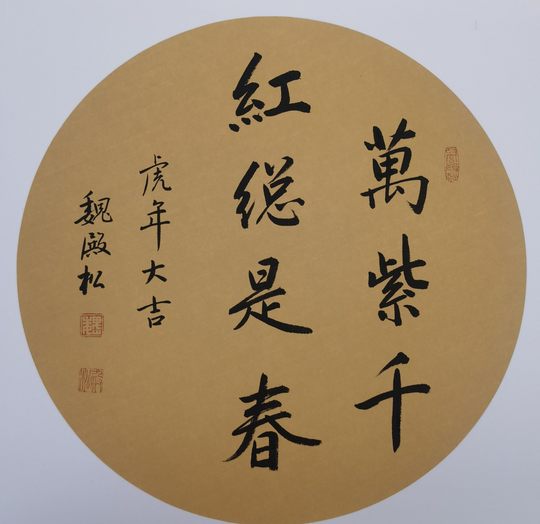 萬紫千
紅総是春
虎年大吉
魏殿松